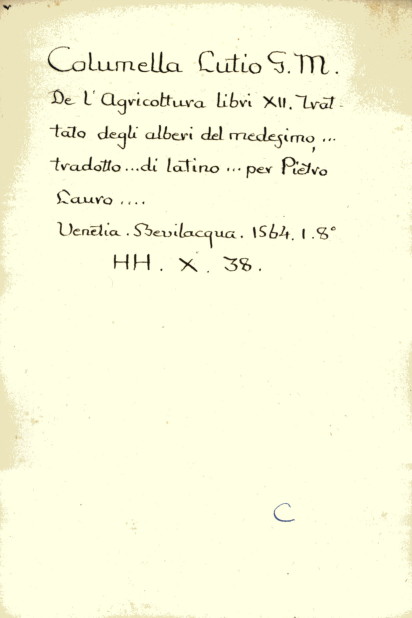 Columella Lutio G. M.
De l'Agricoltura libri XII. Trat-
tato degli alberi del medesimo, ...
tradotto ... di latino ... per Pietro
Lauro ....
Venetia. Bevilacqua. 1564. 1. 8°
HH. X. 38.
C